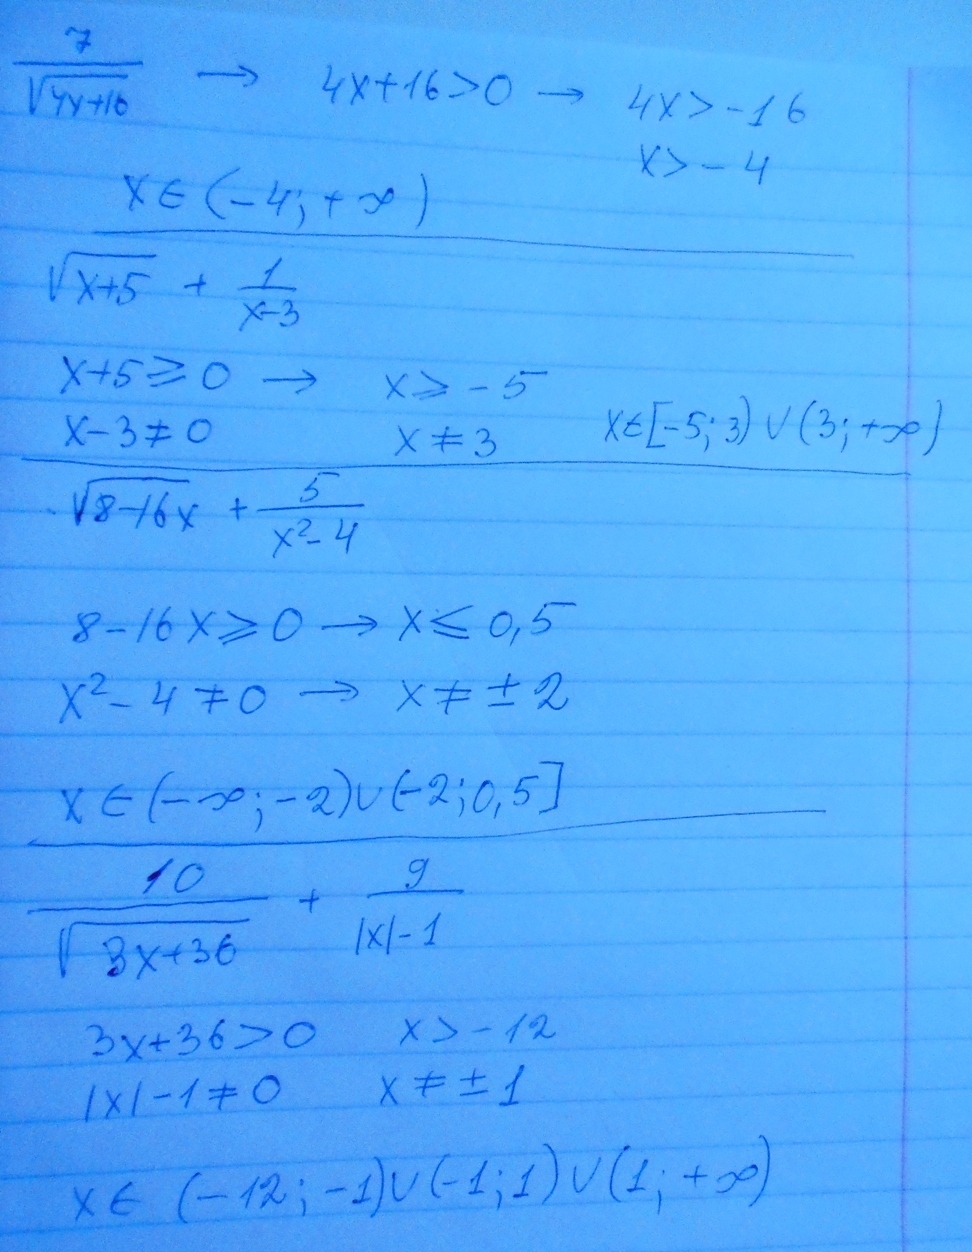 7/√(4x+16) → 4x+16>0 → 4x>-16
x>-4
x∈(-4;+∞)
√(x+5) + 1/(x-3)
x+5⩾0 → x⩾-5
x-3≠0 x≠3 x∈[-5;3)∪(3;+∞)
√(8-16x) + 5/(x²-4)
8-16x⩾0 → x≤0,5
x²-4≠0 → x≠±2
x∈(-∞;-2)∪(-2;0,5]
10/√(3x+36) + 9/(|x|-1)
3x+36>0 x>-12
|x|-1≠0 x≠±1
x∈ (-12;-1)∪(-1;1)∪(1;+∞)